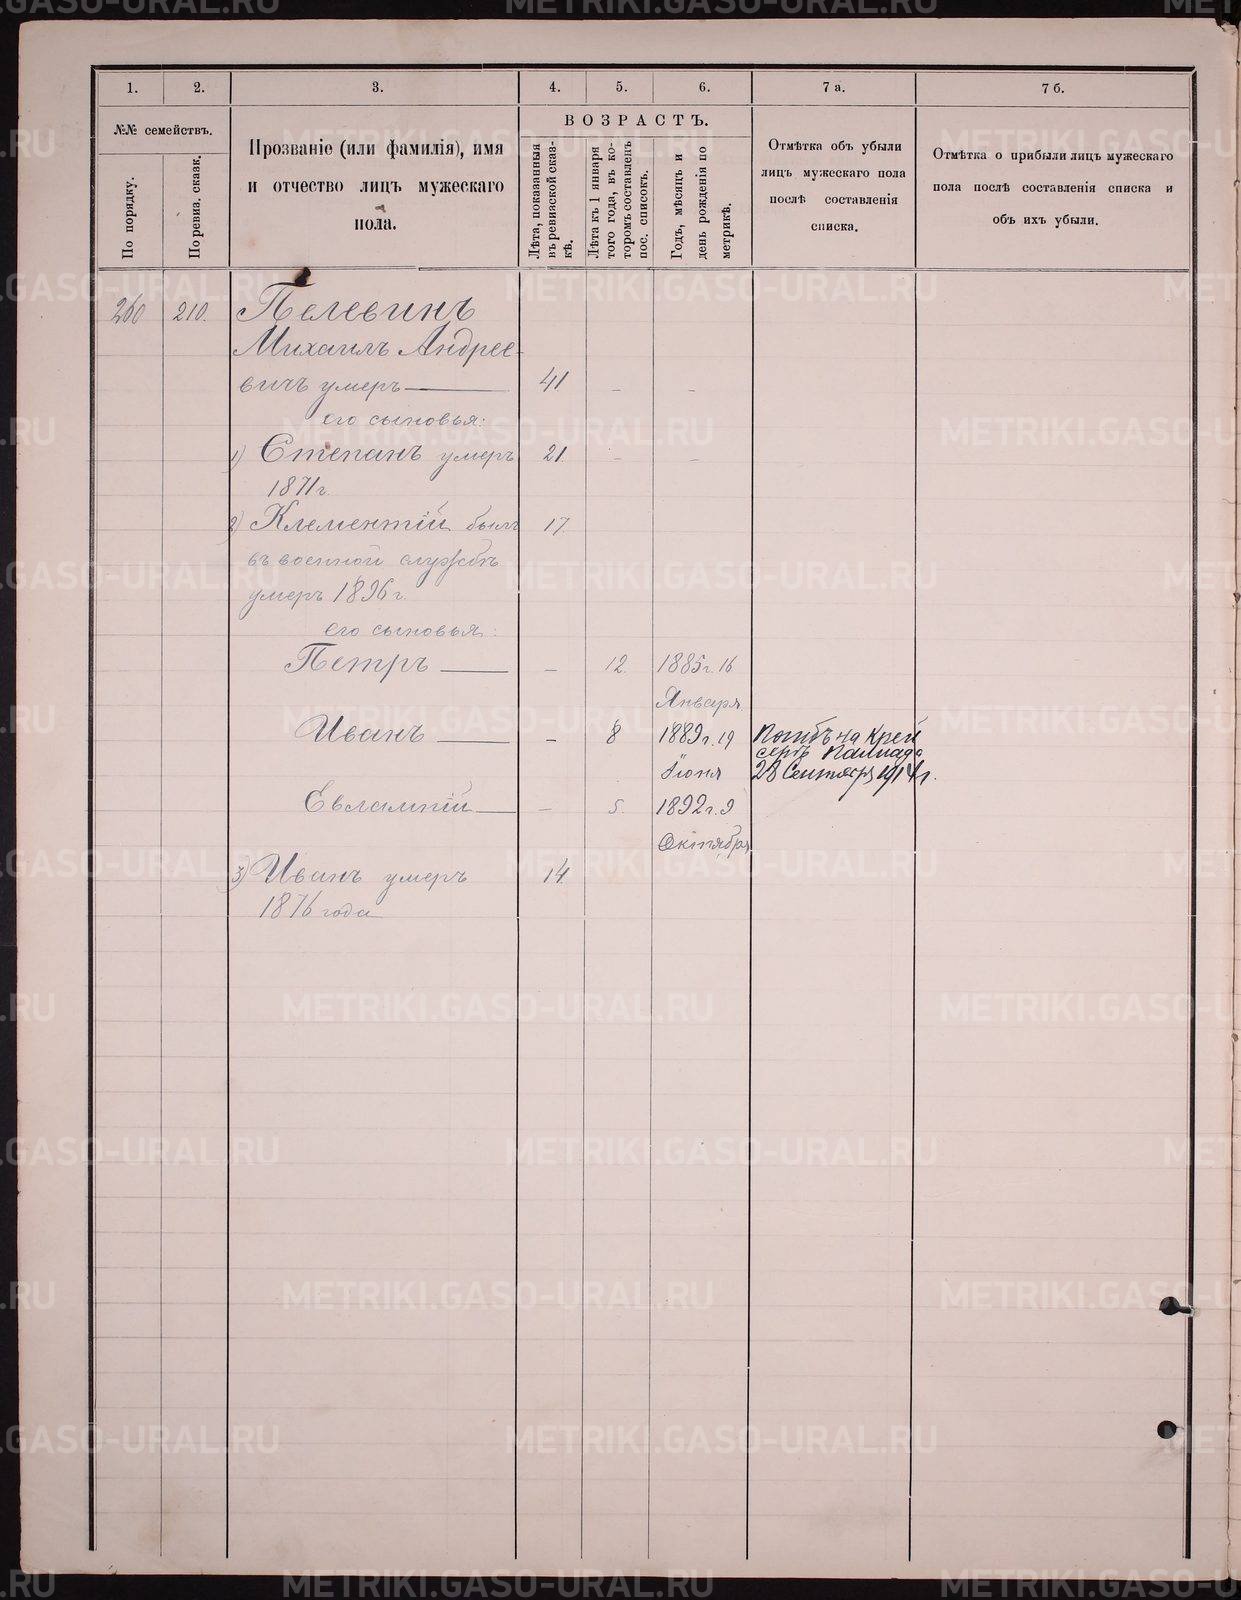 1. 2. 3. 4. 5. 6. 7 а. 7 б.
№№ семействъ.
По порядку.
По ревиз. сказк.
Прозваніе (или фамилія), имя
и отчество лицъ мужескаго
пола.
ВОЗРАСТЪ.
Лѣта, показанныя
въ ревизской сказ-
кѣ.
Лѣта къ 1 января
того года, въ ко-
торомъ составленъ
пос. списокъ.
Годъ, мѣсяцъ и
день рожденія по
метрикѣ.
Отмѣтка объ убыли
лицъ мужескаго пола
послѣ составленія
списка.
Отмѣтка о прибыли лицъ мужескаго
пола послѣ составленія списка и
объ ихъ убыли.
260 210. Пелевинъ
Михаилъ Андрее-
вичъ умеръ — 41 – –
его сыновья:
1) Степанъ умеръ 21. – –
1871 г.
2) Клементій былъ 17.
въ военной службѣ
умеръ 1896 г.
его сыновья:
Петръ — – 12. 1885 г. 16
Января
Иванъ — – 8 1889 г. 19 Погибъ на крей
серѣ Паллада
Іюня 28 Сентября 1914 г.
Евлампій — – 5. 1892 г. 9
Октября
3) Иванъ умеръ 14.
1876 года
METRIKI.GASO-URAL.RU